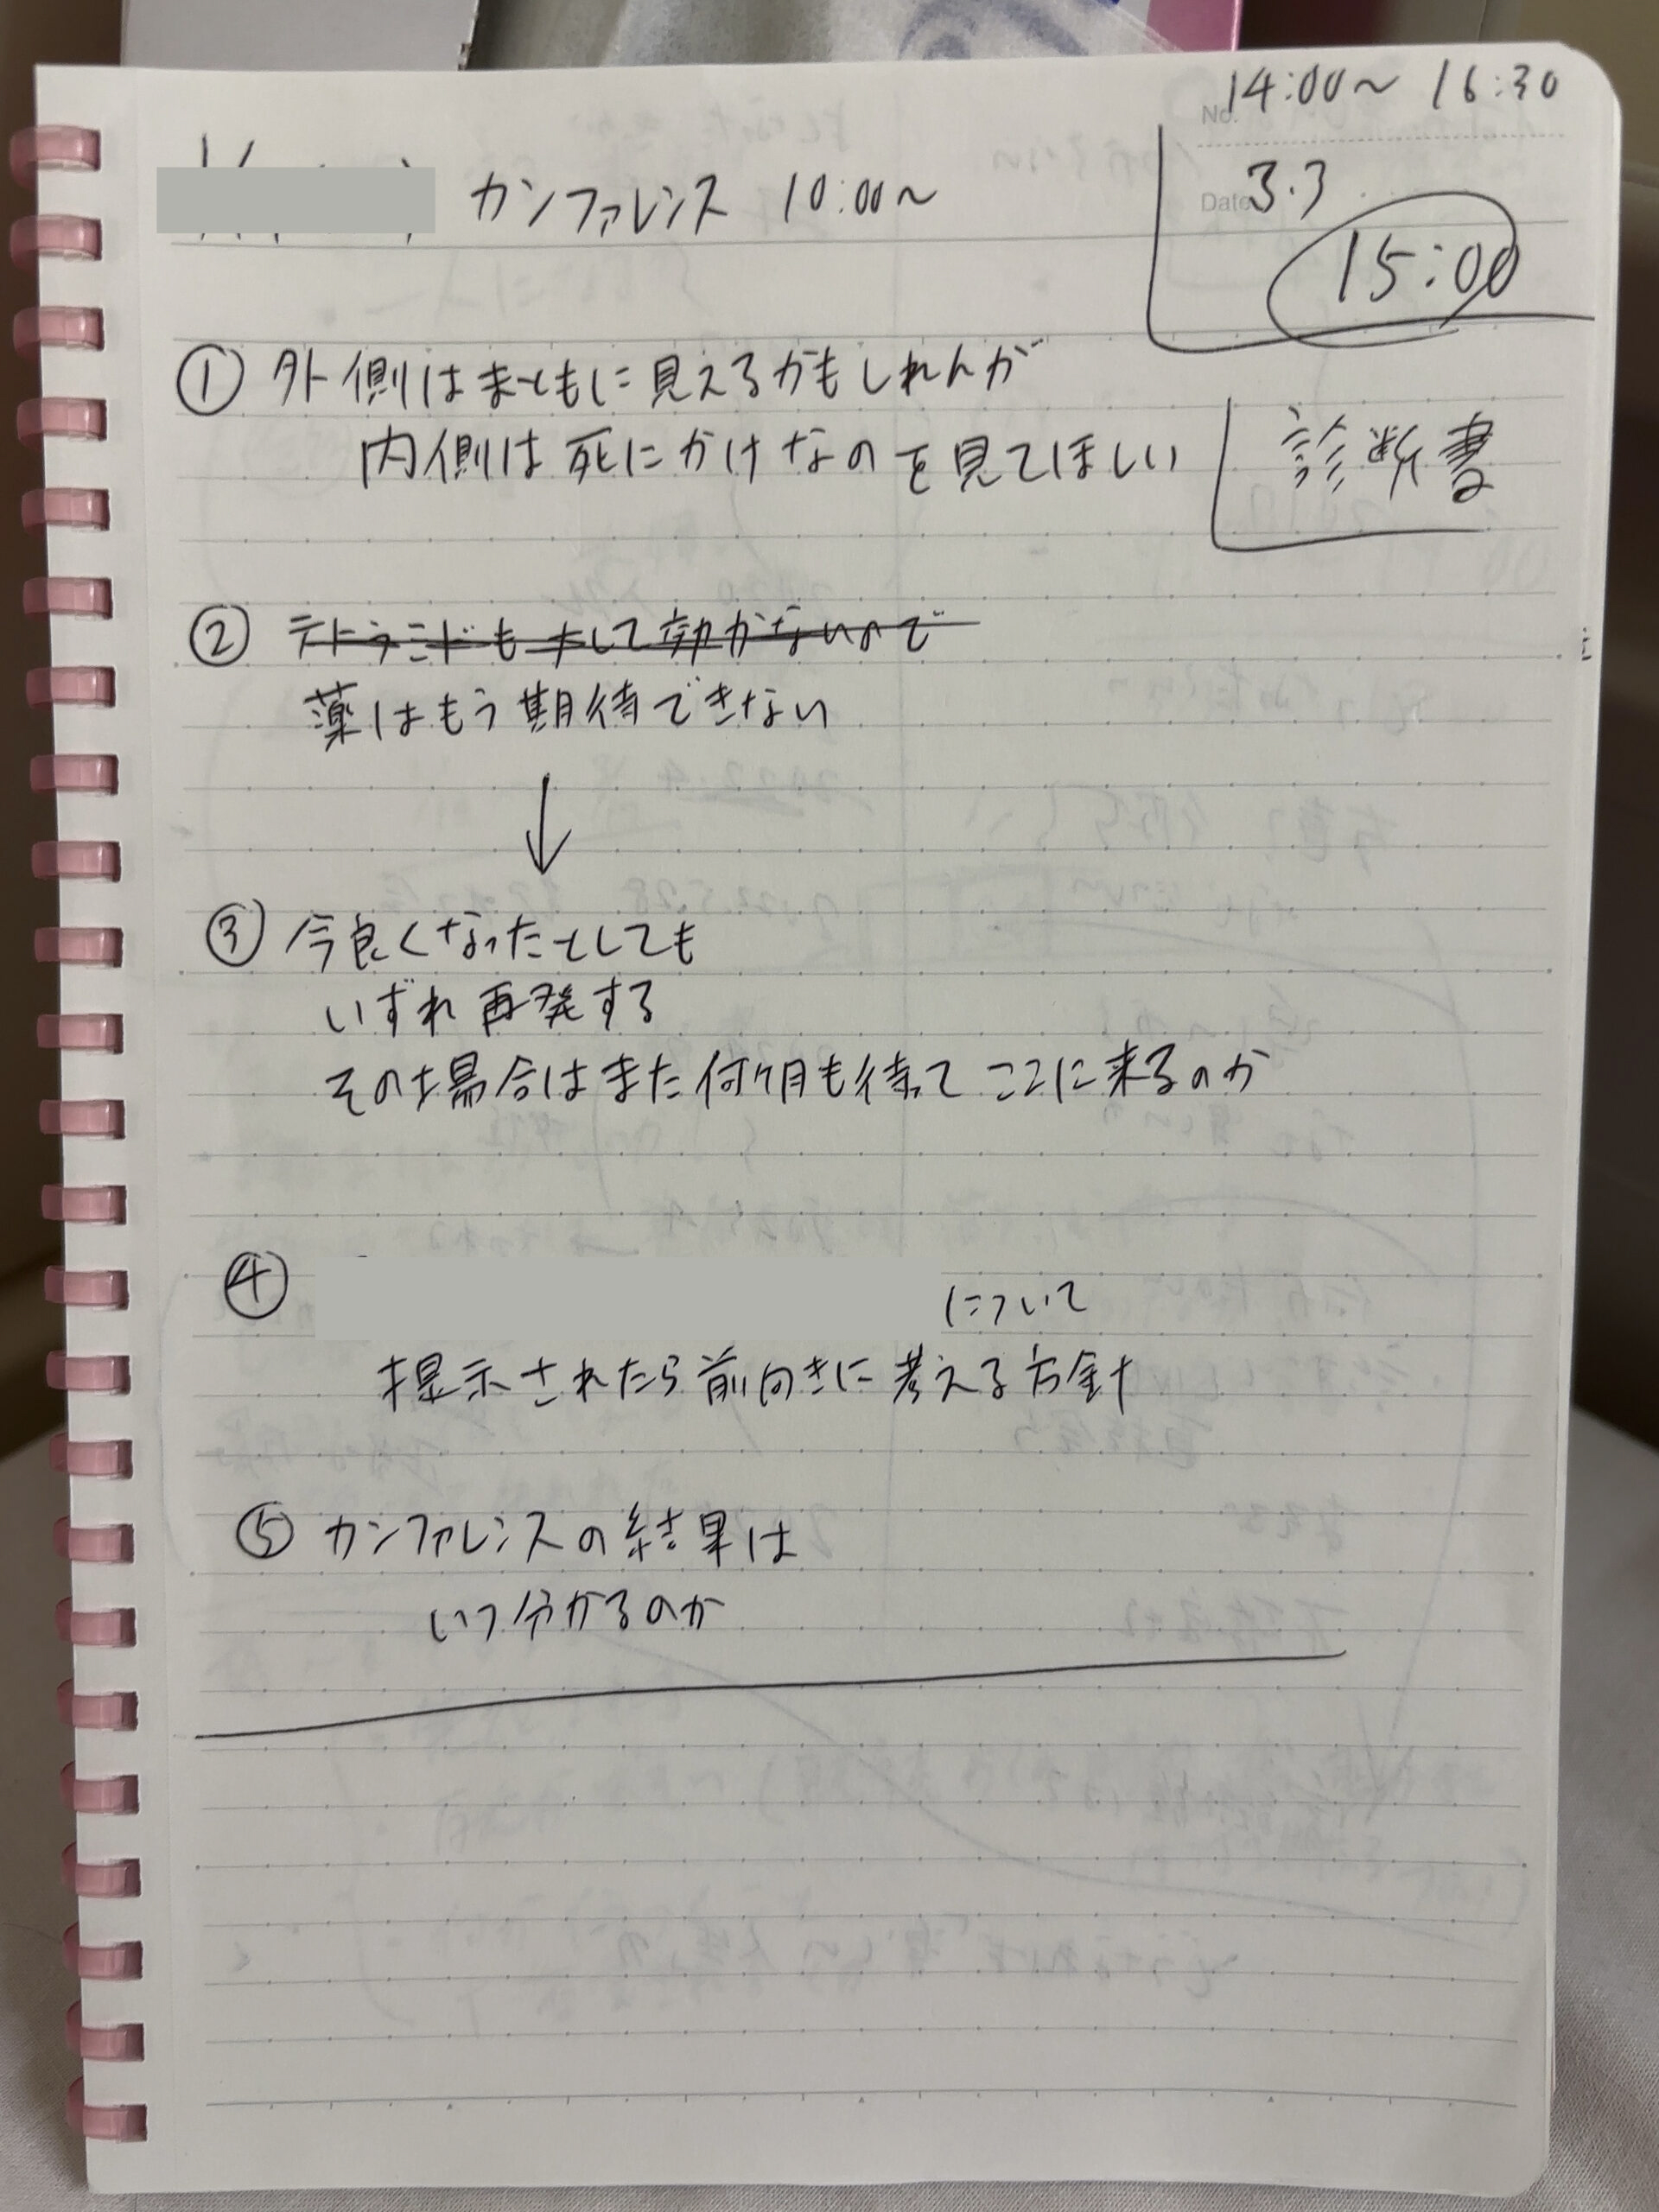 14:00〜 16:30
No.
カンファレンス 10:00〜
Date 3.3
15:00
① 外側はまともに見えるかもしれんが
内側は死にかけなのを見てほしい
診断書
② テトラミドも大して効かないので
薬はもう期待できない
↓
③ 今良くなったとしても
いずれ再発する
その場合はまた何ヶ月も待ってここに来るのか
④ について
提示されたら前向きに考える方針
⑤ カンファレンスの結果は
いつ分かるのか